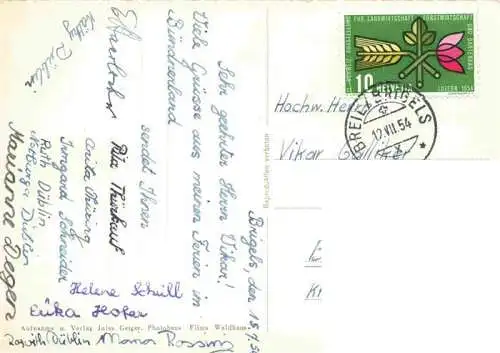 Brigels, den 18.7.54
Sehr geehrter Herr Vikar!
Viele Grüsse aus meinen Ferien im
Bündnerland
sendet Ihnen
Pia Thürkauf
Irmgard Schneider
Ruth Düblin
Notburga Düblin
Marianne Degen
Käthy Düblin
Helene Schüll
Erika Hofer
Düblin Mona Rossing
Aufnahme u. Verlag Jules Geiger, Photohaus Flims Waldhaus
Reproduktion verboten
AUSSTELLUNG FÜR LANDWIRTSCHAFT FORSTWIRTSCHAFT UND GARTENBAU
LUZERN 1954
10 HELVETIA
BREIL BRIGELS
12.VII.54
Hochw. Herrn
Vikar Galliker